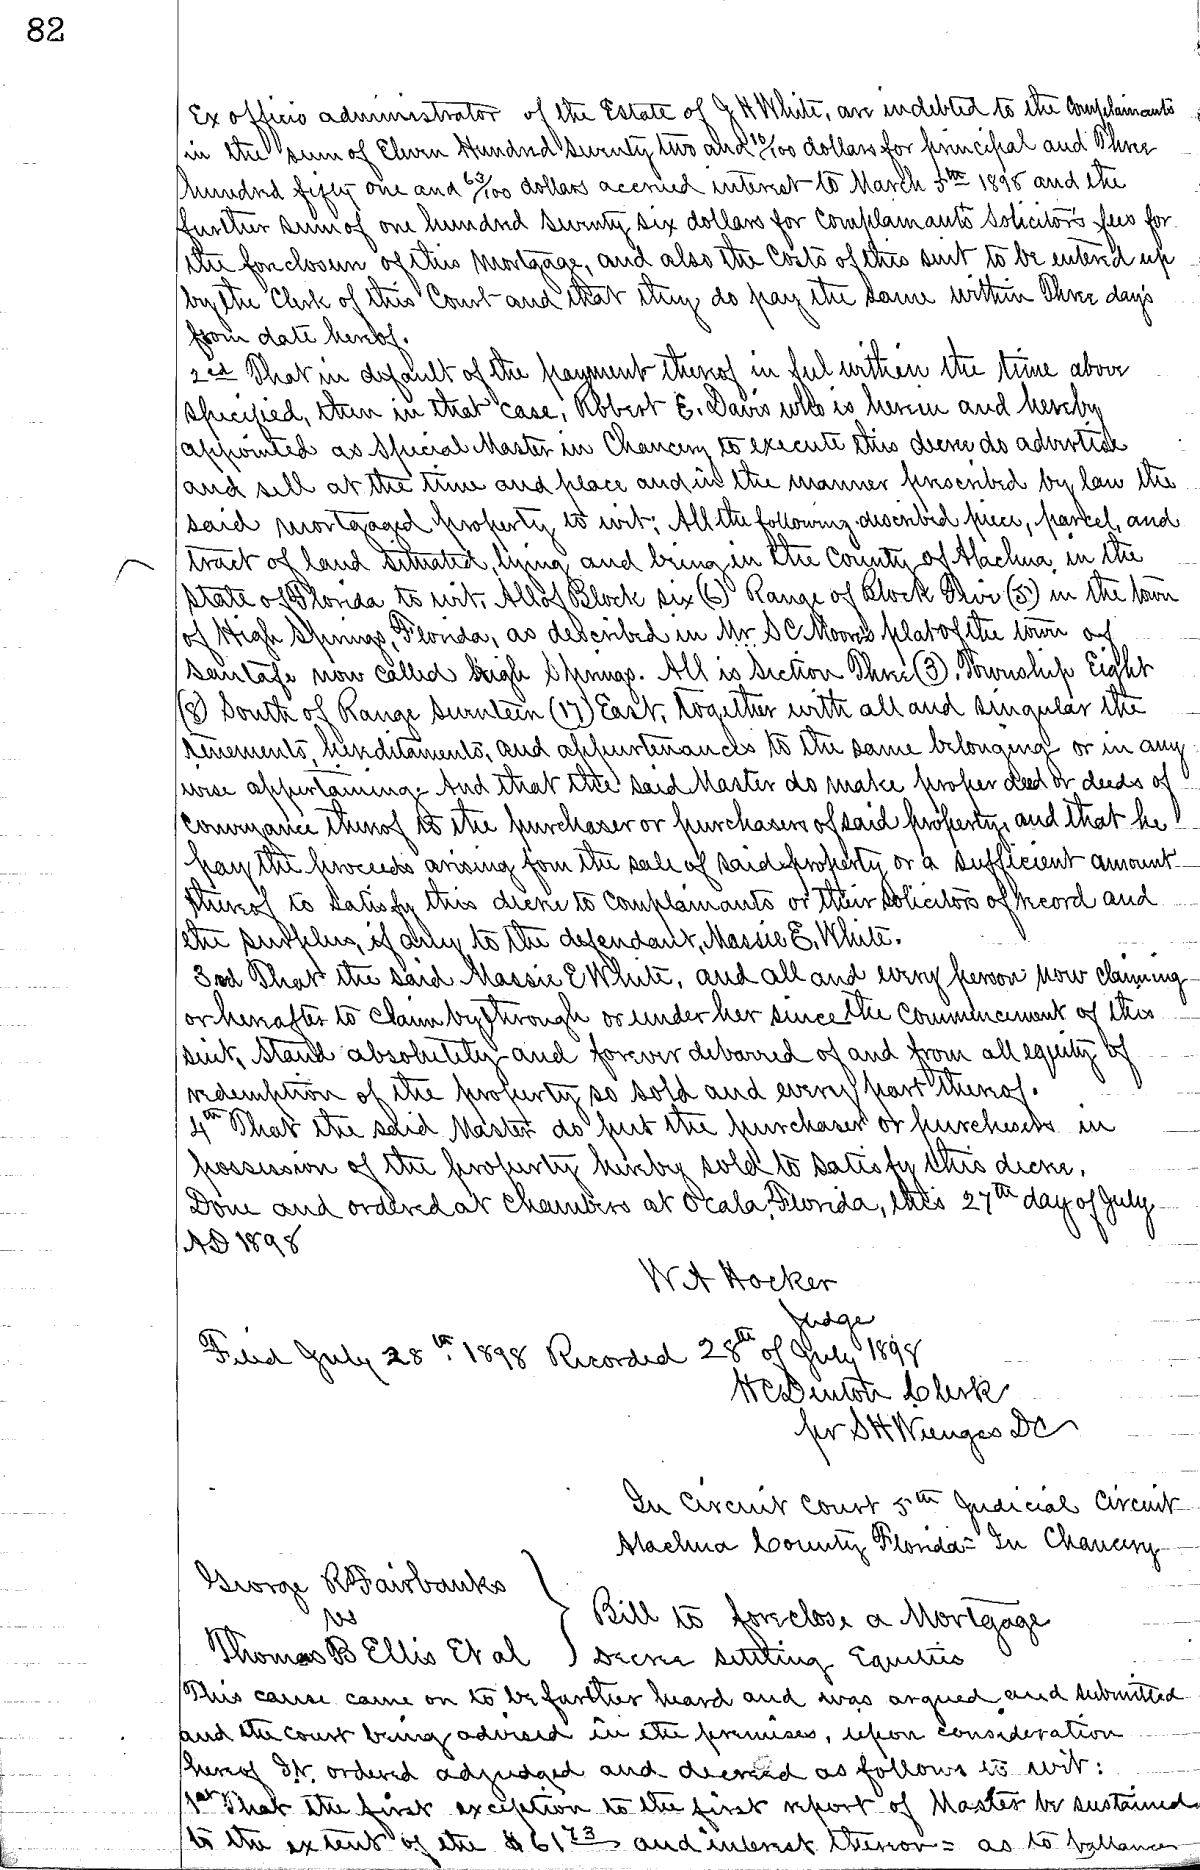 82
Ex officio administrator of the Estate of J H White, are indebted to the Complainants
in the sum of Eleven Hundred Seventy two and 10/100 dollars for principal and Three
hundred fifty one and 63/100 dollars accrued interest to March 5th 1898 and the
further sum of one hundred seventy six dollars for Complainants Solicitors fees for
the foreclosure of this Mortgage, and also the Costs of this suit to be entered up
by the Clerk of this Court and that they do pay the same within Three days
from date hereof.
2ed That in default of the payment thereof in ful within the time above
specified, then in that case, Robert E. Davis who is herein and hereby
appointed as Special Master in Chancery to execute this decree do advertise
and sell at the time and place and in the manner prescribed by law the
said mortgaged property to wit; All the following described piece, parcel, and
tract of land situated, lying and being in the County of Alachua in the
State of Florida to wit. All of Block six (6) Range of Block Five (5) in the town
of High Springs, Florida, as described in Mr. S C Moores plat of the town of
Santafe now called High Springs. All is Section Three (3). Township Eight
(8) South of Range Seventeen (17) East. Together with all and singular the
tenements, hereditaments, and appurtenances to the same belonging or in any
wise appertaining. And that the said Master do make proper deed or deeds of
conveyance thereof to the purchaser or purchasers of said property, and that he
pay the proceeds arising fom the sale of said property or a sufficient amount
thereof to satisfy this decree to complainants or their solicitors of record and
the surplus, if any to the defendant, Massie E. White.
3ed That the said Massie E White, and all and every person now claiming
or hereafter to claim by through or under her since the commencement of this
suit, stand absolutely and forever debarred of and from all equity of
redemption of the property so sold and every part thereof.
4th That the said Master do put the purchaser or purchasers in
possession of the property hereby sold to satisfy this decree.
Done and ordered at Chambers at Ocala, Florida, this 27th day of July
AD 1898
W A Hocker
Judge
Filed July 28th 1898 Recorded 28th of July 1898
H C Denton Clerk
per S H Wienges DC
In Circuit Court 5th Judicial Circuit
Alachua County Florida = In Chancery
George R Fairbanks
vs
Thomas B Ellis Et al
Bill to foreclose a Mortgage
Decree settling Equities
This cause came on to be further heard and was argued and submitted
and the court being advised in the premises, upon consideration
hereof It. ordered adjudged and decreed as follows to wit:
1st That the first exception to the first report of Master be sustained
to the extent of the $61 73 and interest thereon = as to ballance